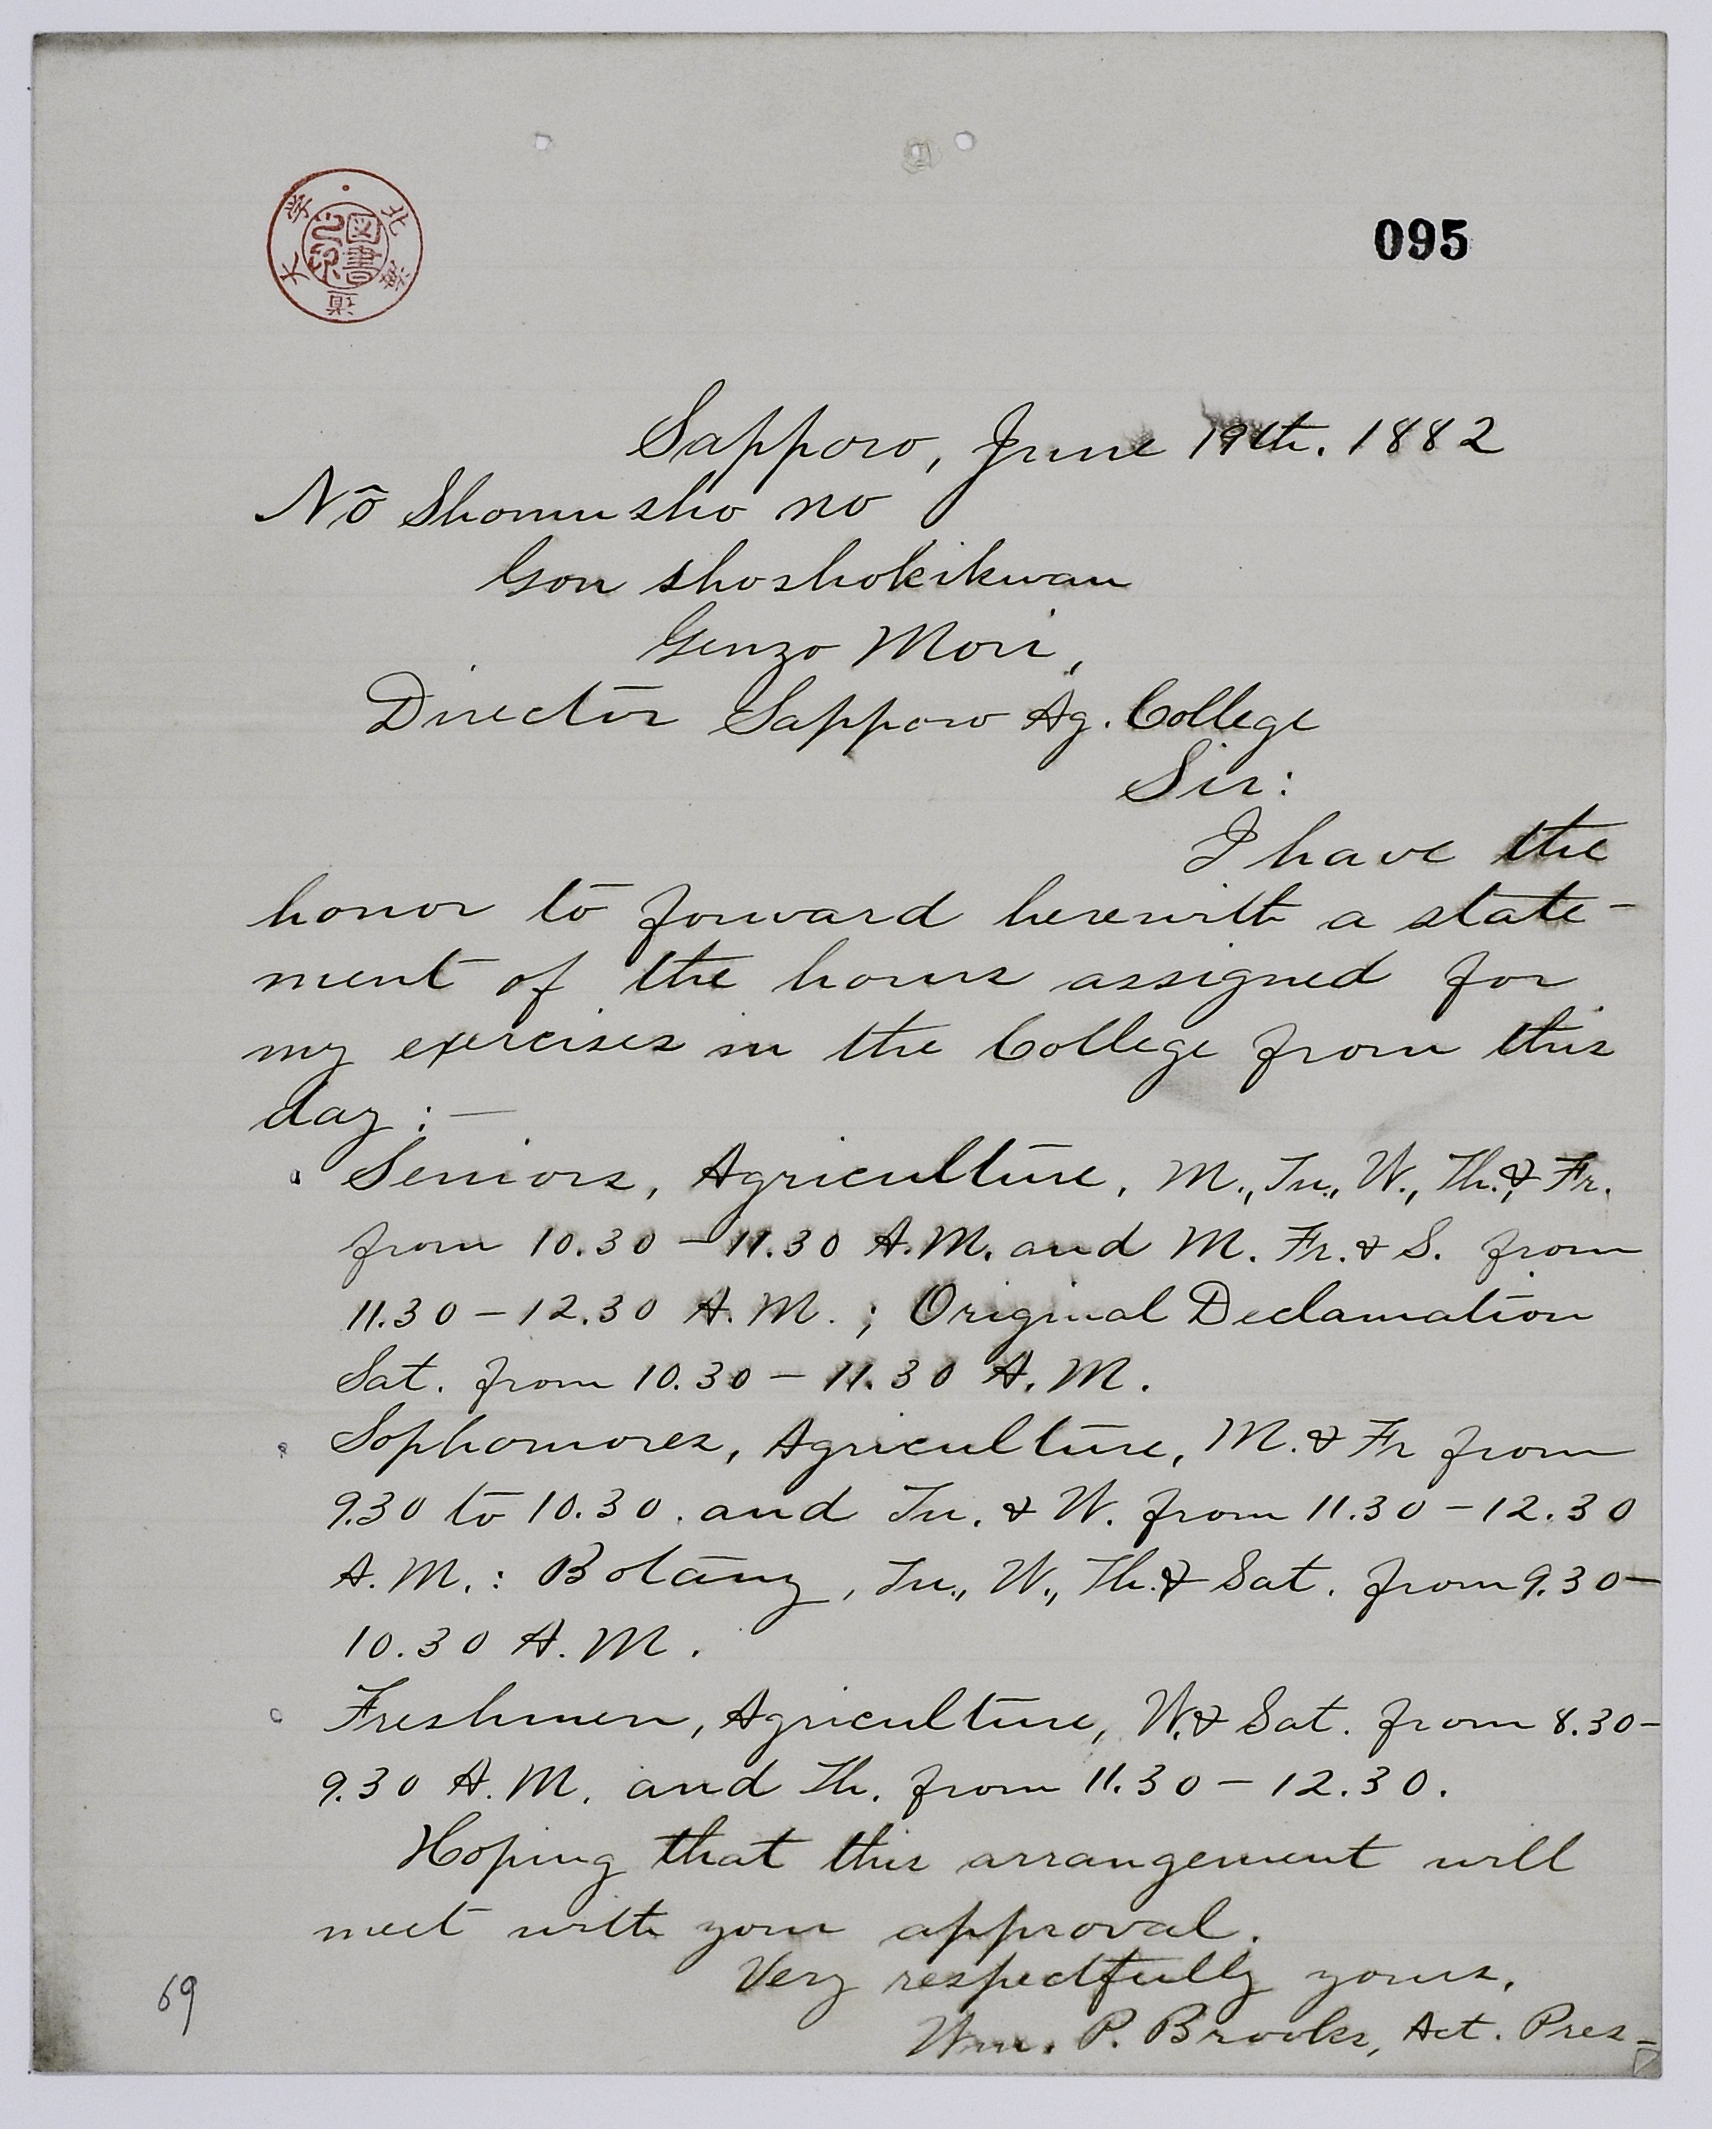 北海道大学
図書之印
095
Sapporo, June 19th. 1882
Nō Shomusho no
Gon shoshokikwan
Genzo Mori,
Director Sapporo Ag. College
Sir:
I have the
honor to forward herewith a state-
ment of the hours assigned for
my exercises in the College from this
day :—
Seniors, Agriculture, M., Tu., W., Th. & Fr.
from 10.30 – 11.30 A.M. and M. Fr. & S. from
11.30 – 12.30 A.M. ; Original Declamation
Sat. from 10.30 – 11.30 A.M.
Sophomores, Agriculture, M. & Fr from
9.30 to 10.30. and Tu. & W. from 11.30 – 12.30
A.M. : Botany, Tu., W., Th. & Sat. from 9.30 –
10.30 A.M.
Freshmen, Agriculture, W. & Sat. from 8.30 –
9.30 A.M. and Th. from 11.30 – 12.30.
Hoping that this arrangement will
meet with your approval.
Very respectfully yours,
Wm. P. Brooks, Act. Pres-
69